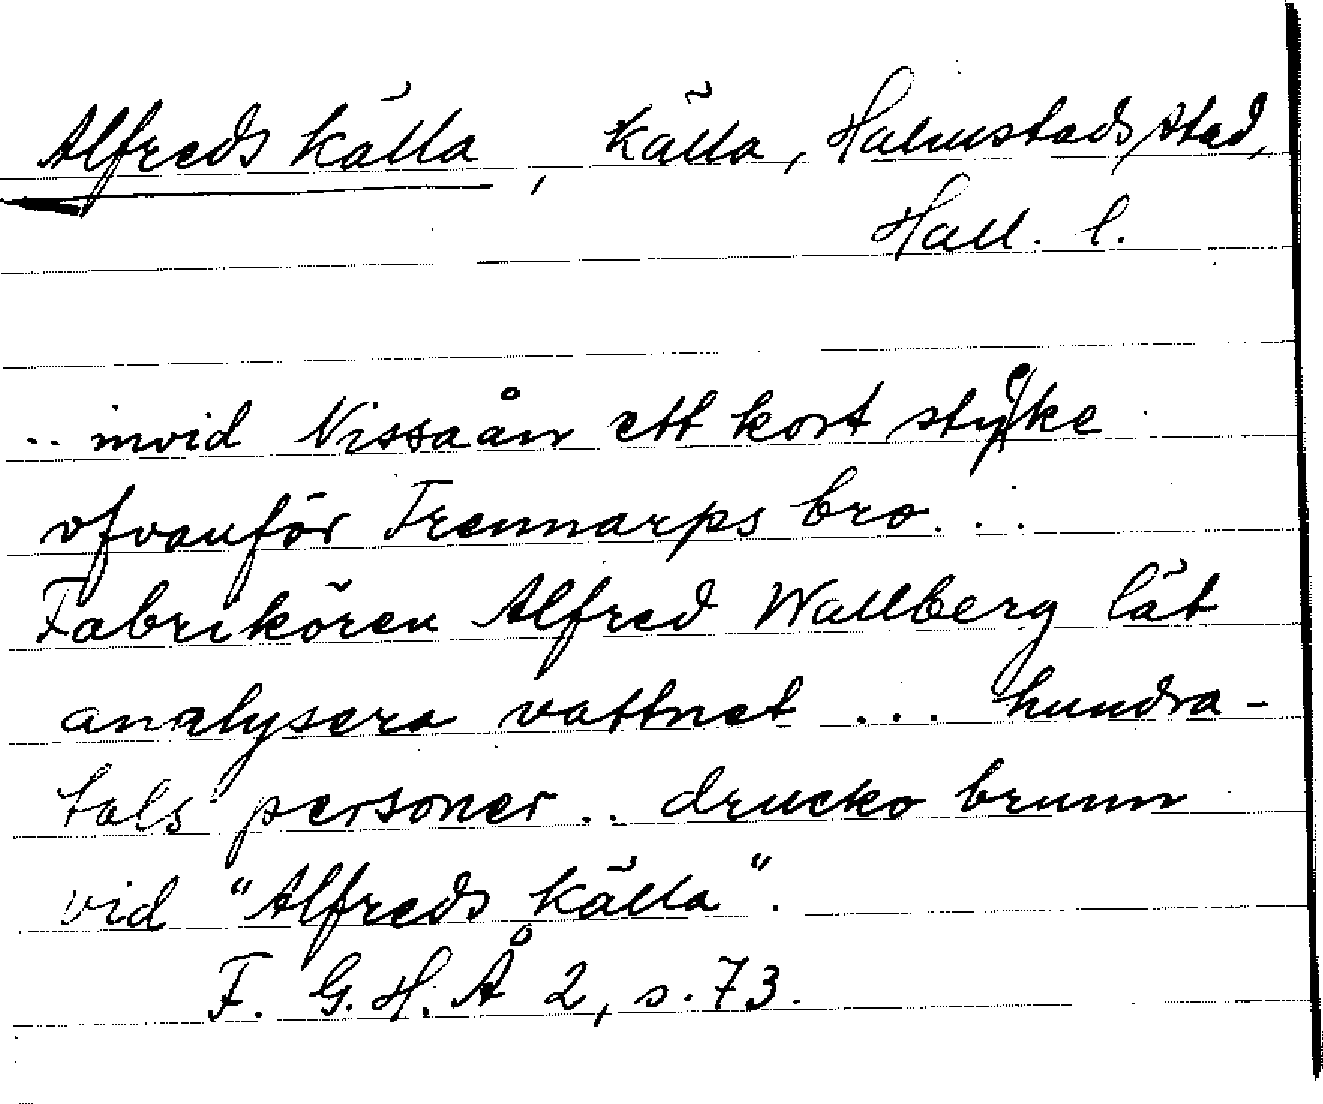 Alfreds källa, källa, Halmstads stad,
Hall. l.
.. invid Nissaån ett kort stycke
ofvanför Trennarps bro...
Fabrikören Alfred Wallberg lät
analysera vattnet ... hundra-
tals personer .. drucko brunn
vid "Alfreds källa".
F. G. H. Å 2, s. 73.